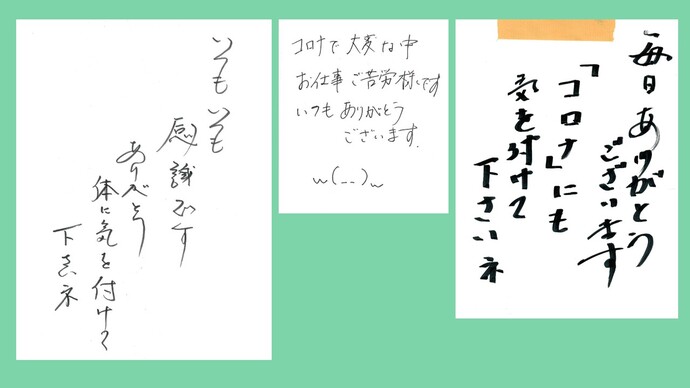 いつもいつも
感謝です
ありがとう
体に気を付けて
下さいネ
コロナで大変な中
お仕事ご苦労様です
いつもありがとう
ございます.
m(__)m
毎日ありがとう
ございます
「コロナ」にも
気を付けて
下さいネ